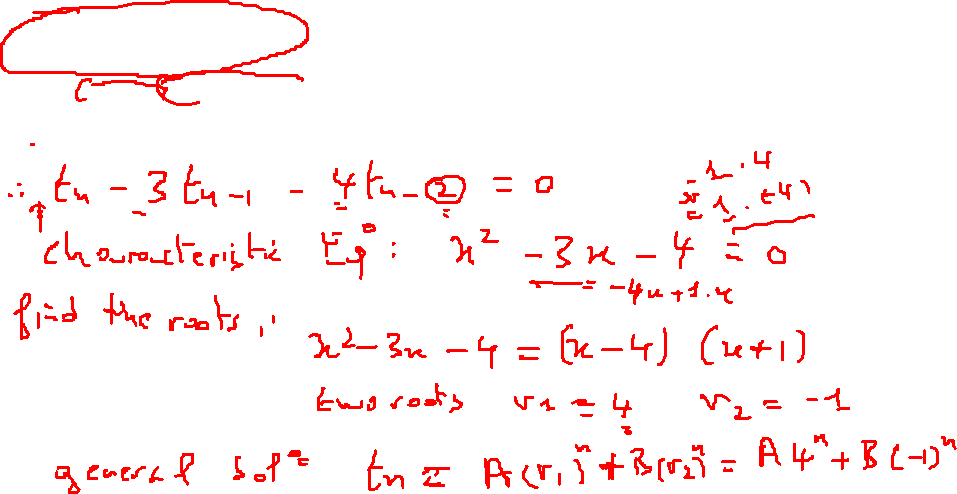 ∴ tn - 3 tn-1 - 4 tn-2 = 0
-1 . 4
1 . (-4)
characteristic Eqⁿ : x² - 3x - 4 = 0
-4x + 1.x
find the roots :
x² - 3x - 4 = (x - 4) (x + 1)
two roots r1 = 4 r2 = -1
general solⁿ = tn = A(r1)ⁿ + B(r2)ⁿ = A4ⁿ + B(-1)ⁿ